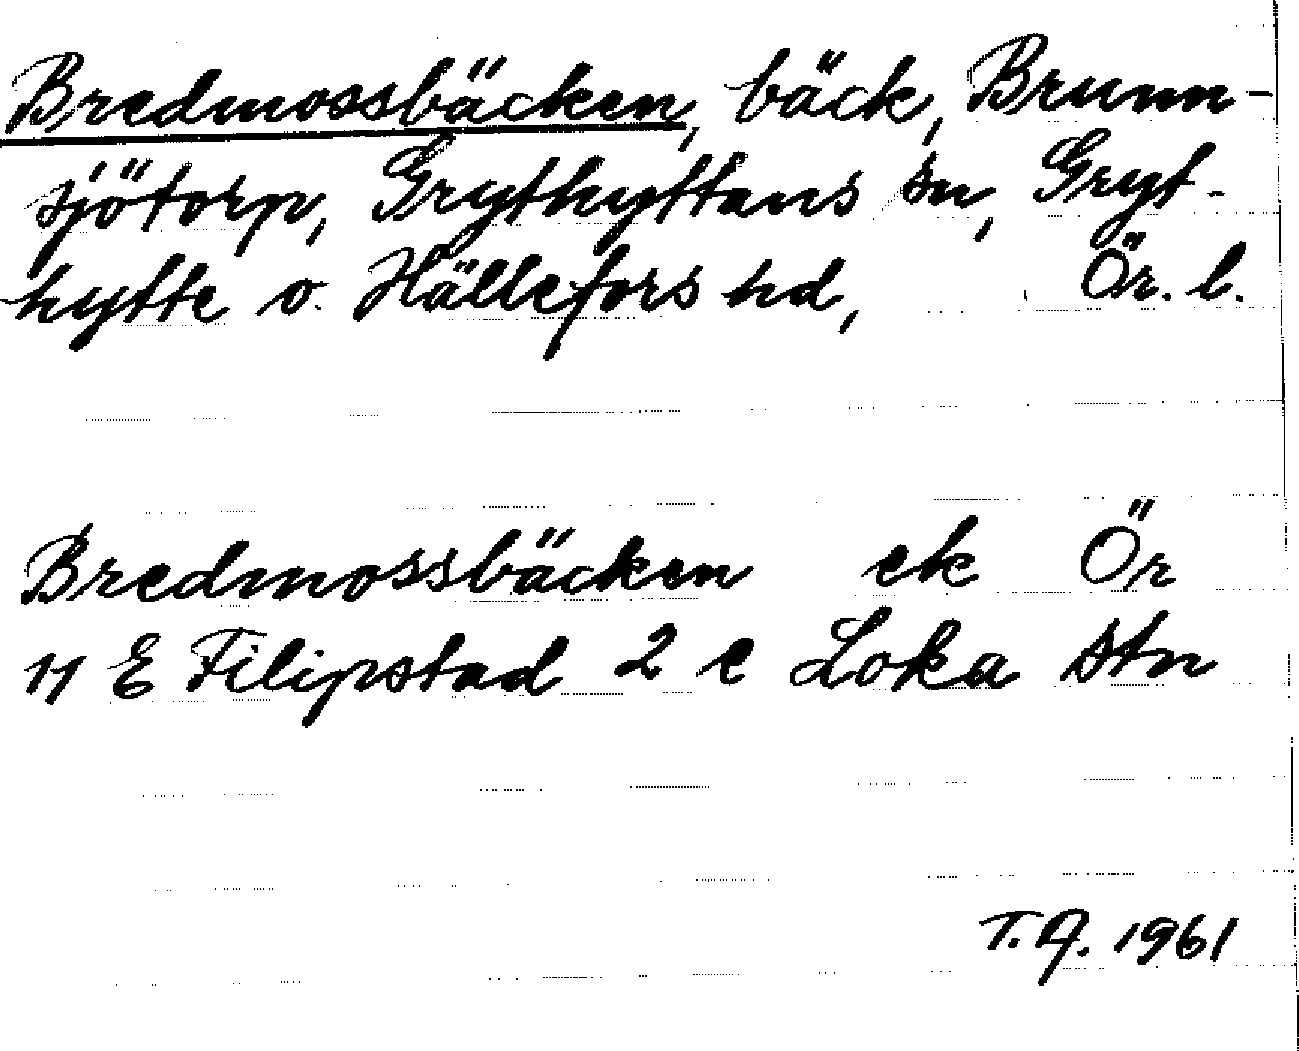 Bredmossbäcken, bäck, Brunn-
sjötorp, Grythyttans sn, Gryt-
hytte o. Hällefors hd, Ör. l.
Bredmossbäcken ek Ör
11 E Filipstad 2 e Loka stn
T.A. 1961